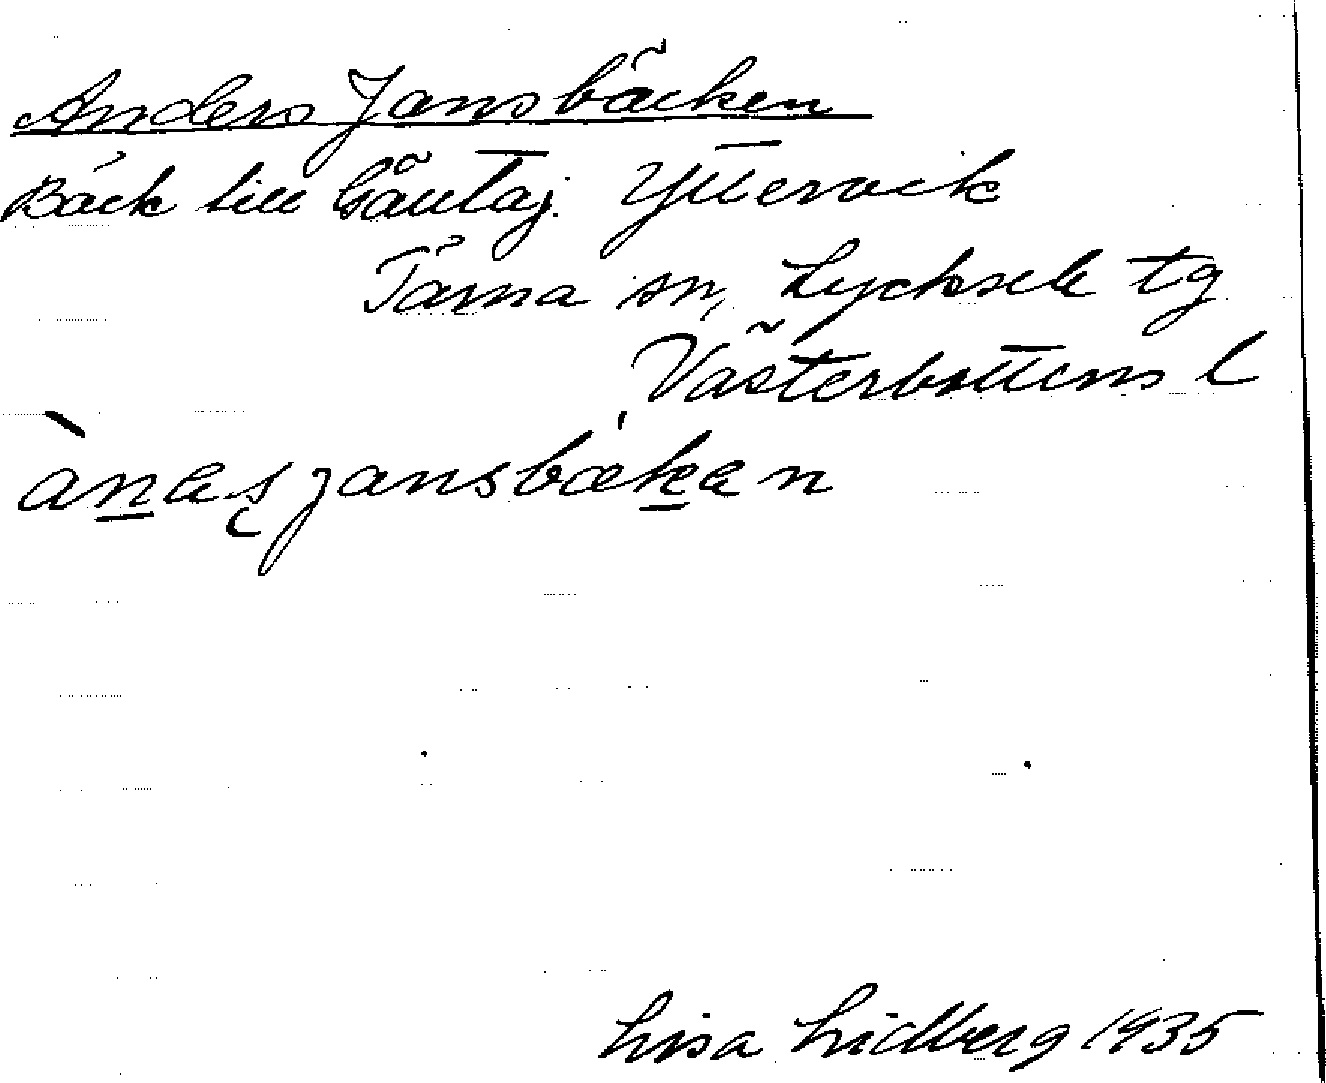 Anders Jansbäcken
Bäck till Gäutaj. Yttervik
Tärna sn, Lycksele tg
Västerbottens l
ànas jansbækan
Lisa Lidberg 1935